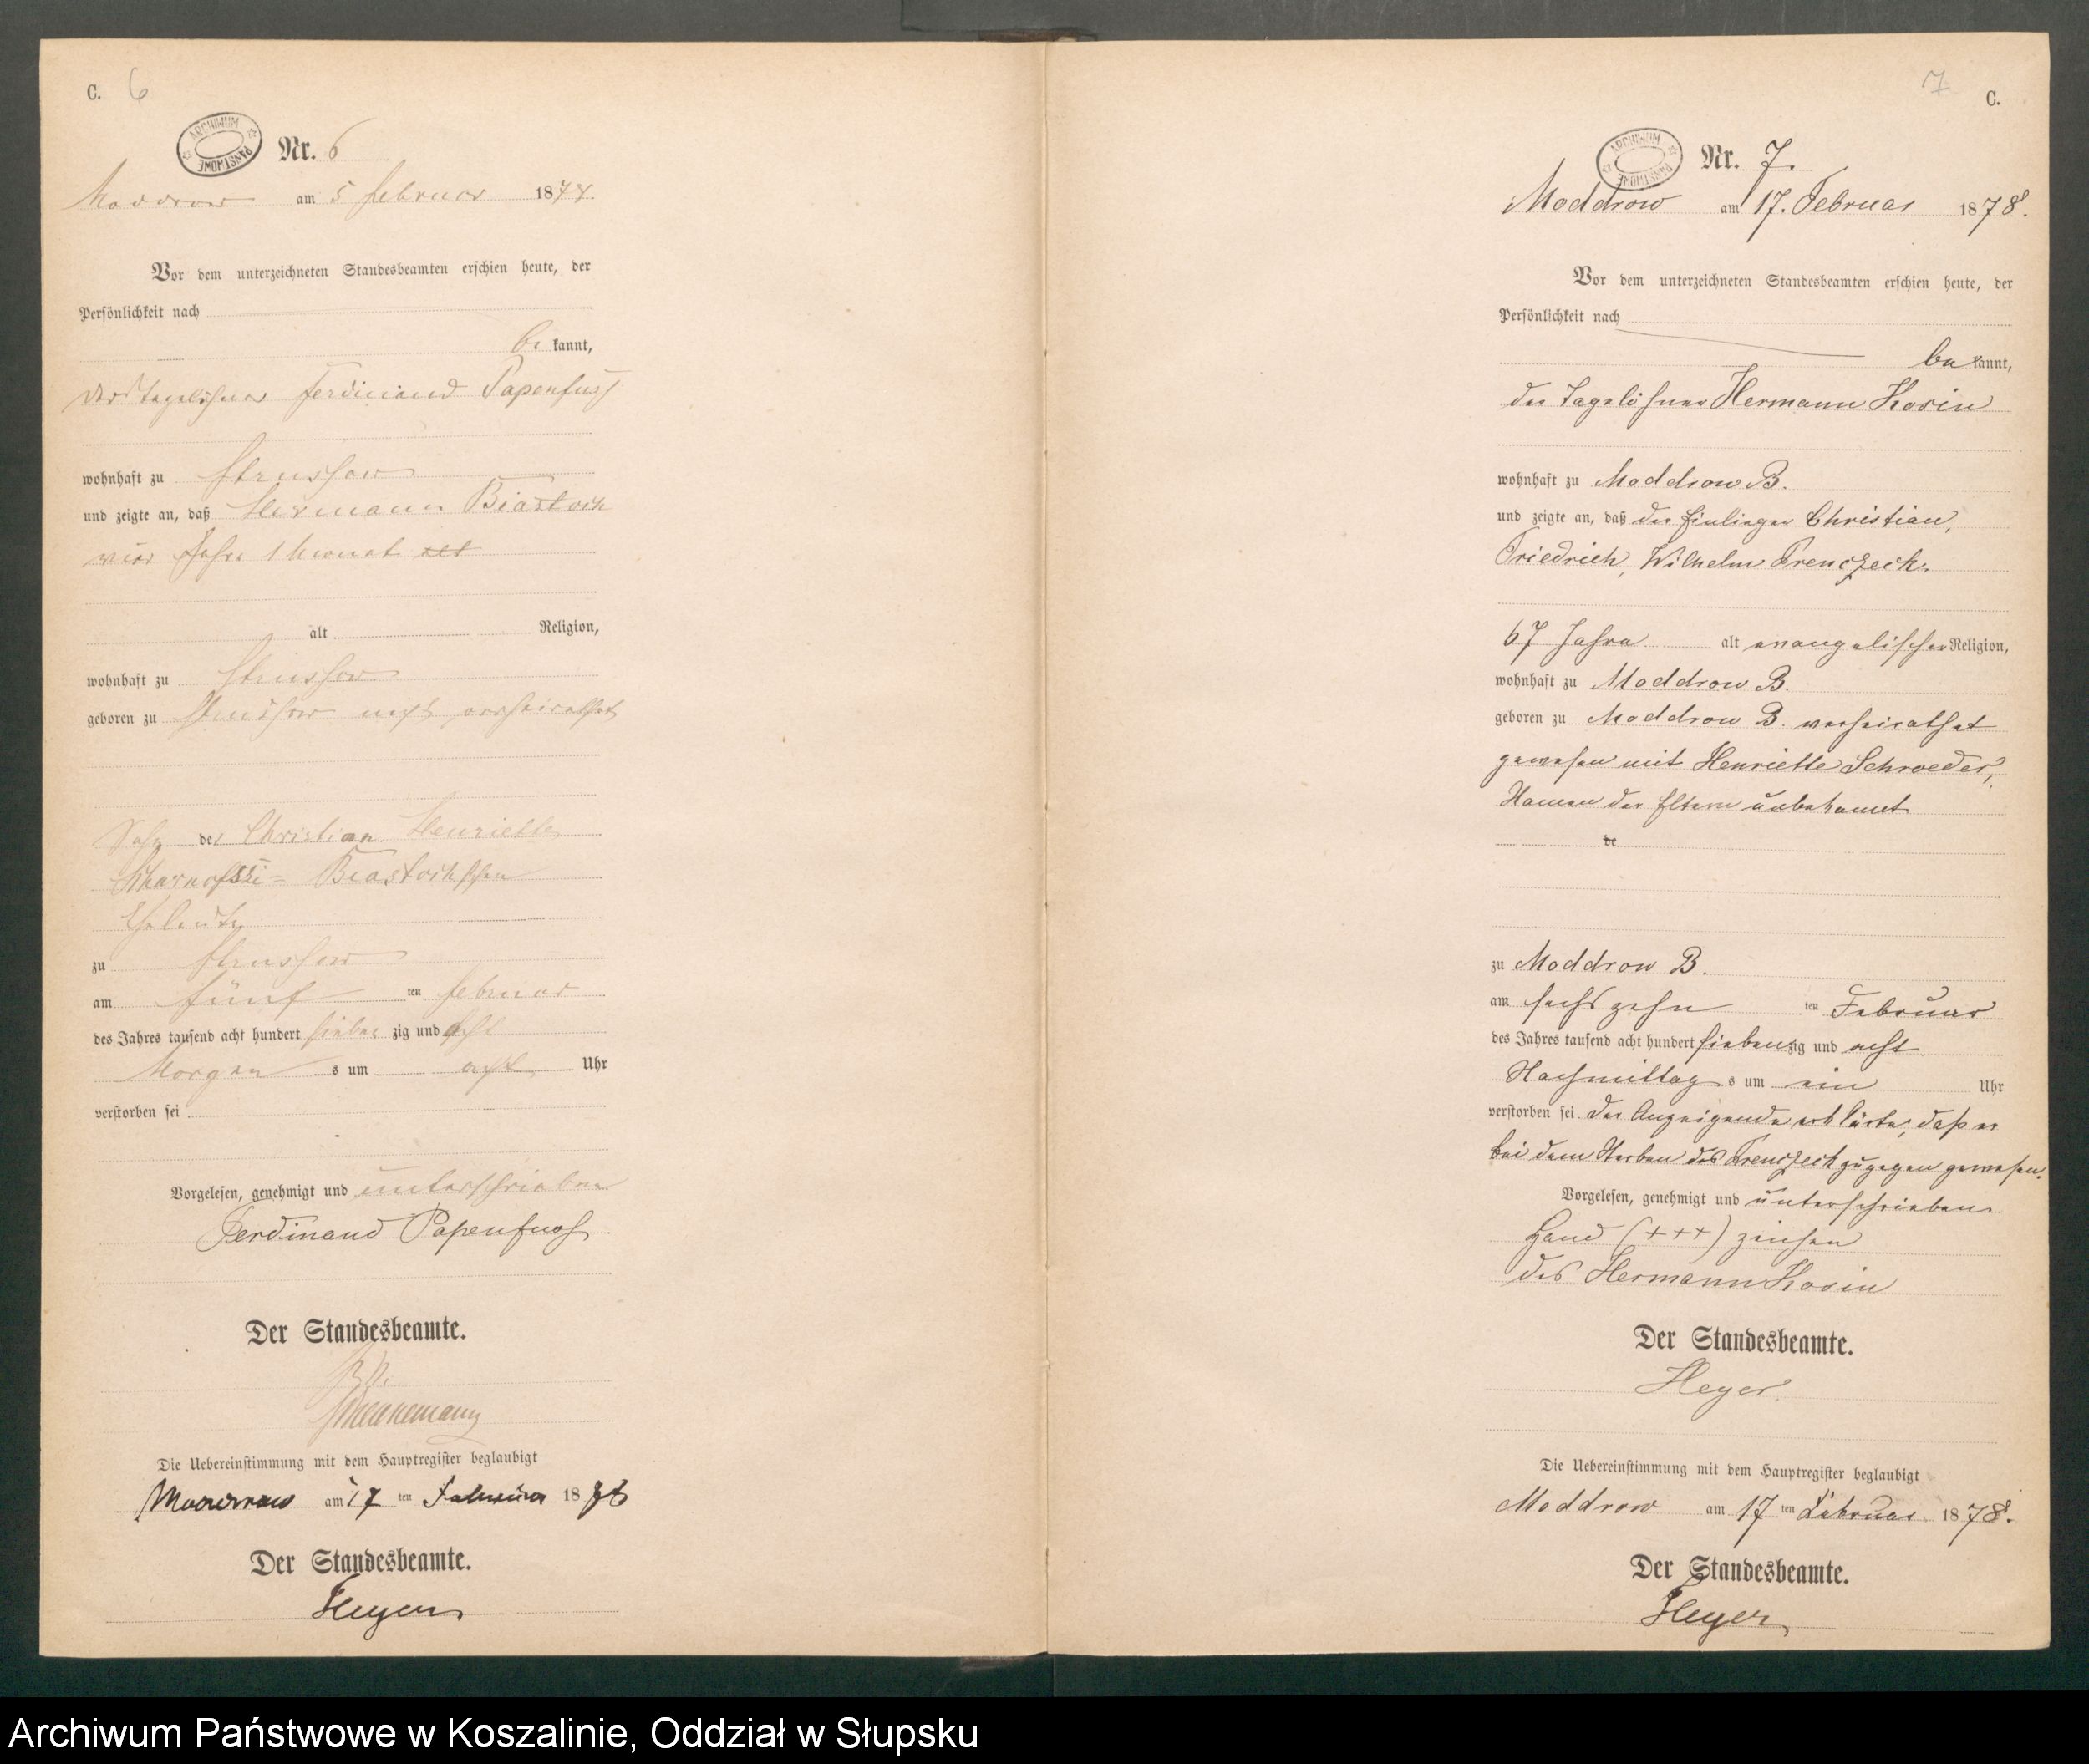 C. 6
ARCHIWUM PAŃSTWOWE
Nr. 6
Moddrow am 5 Februar 1878.
Vor dem unterzeichneten Standesbeamten erschien heute, der
Persönlichkeit nach
be kannt,
der Tagelöhner Ferdinand Papenfuss
wohnhaft zu Strussow
und zeigte an, daß Hermann Biastoch
vier Jahr 1 Monat alt
alt Religion,
wohnhaft zu Strussow
geboren zu Strussow nicht verheirathet
Sohn der Christian Henriette
Biastochschen
Eheleute
zu Strussow
am fünf ten Februar
des Jahres tausend acht hundert sieben zig und acht
Morgen s um acht Uhr
verstorben sei
Vorgelesen, genehmigt und unterschrieben
Ferdinand Papenfuss
Der Standesbeamte.
Die Uebereinstimmung mit dem Hauptregister beglaubigt
Moddrow am 17 ten Februar 1878
Der Standesbeamte.
Heyer
7 C.
ARCHIWUM PAŃSTWOWE
Nr. 7.
Moddrow am 17. Februar 1878.
Vor dem unterzeichneten Standesbeamten erschien heute, der
Persönlichkeit nach
be kannt,
der Tagelöhner Hermann Kosin
wohnhaft zu Moddrow B.
und zeigte an, daß der Einlieger Christian,
Friedrich, Wilhelm Trenczeck.
67 Jahre alt evangelischer Religion,
wohnhaft zu Moddrow B.
geboren zu Moddrow B. verheirathet
gewesen mit Henriette Schroeder,
Namen der Eltern unbekannt
de
zu Moddrow B.
am sechszehn ten Februar
des Jahres tausend acht hundert siebenzig und acht
Nachmittag s um ein Uhr
verstorben sei. Der Anzeigende erklärte, daß er
bei dem Sterben des Trenczeck zugegen gewesen.
Vorgelesen, genehmigt und unterschrieben
Hand (+++) zeichen
des Hermann Kosin
Der Standesbeamte.
Heyer
Die Uebereinstimmung mit dem Hauptregister beglaubigt
Moddrow am 17 ten Februar 1878.
Der Standesbeamte.
Heyer
Archiwum Państwowe w Koszalinie, Oddział w Słupsku